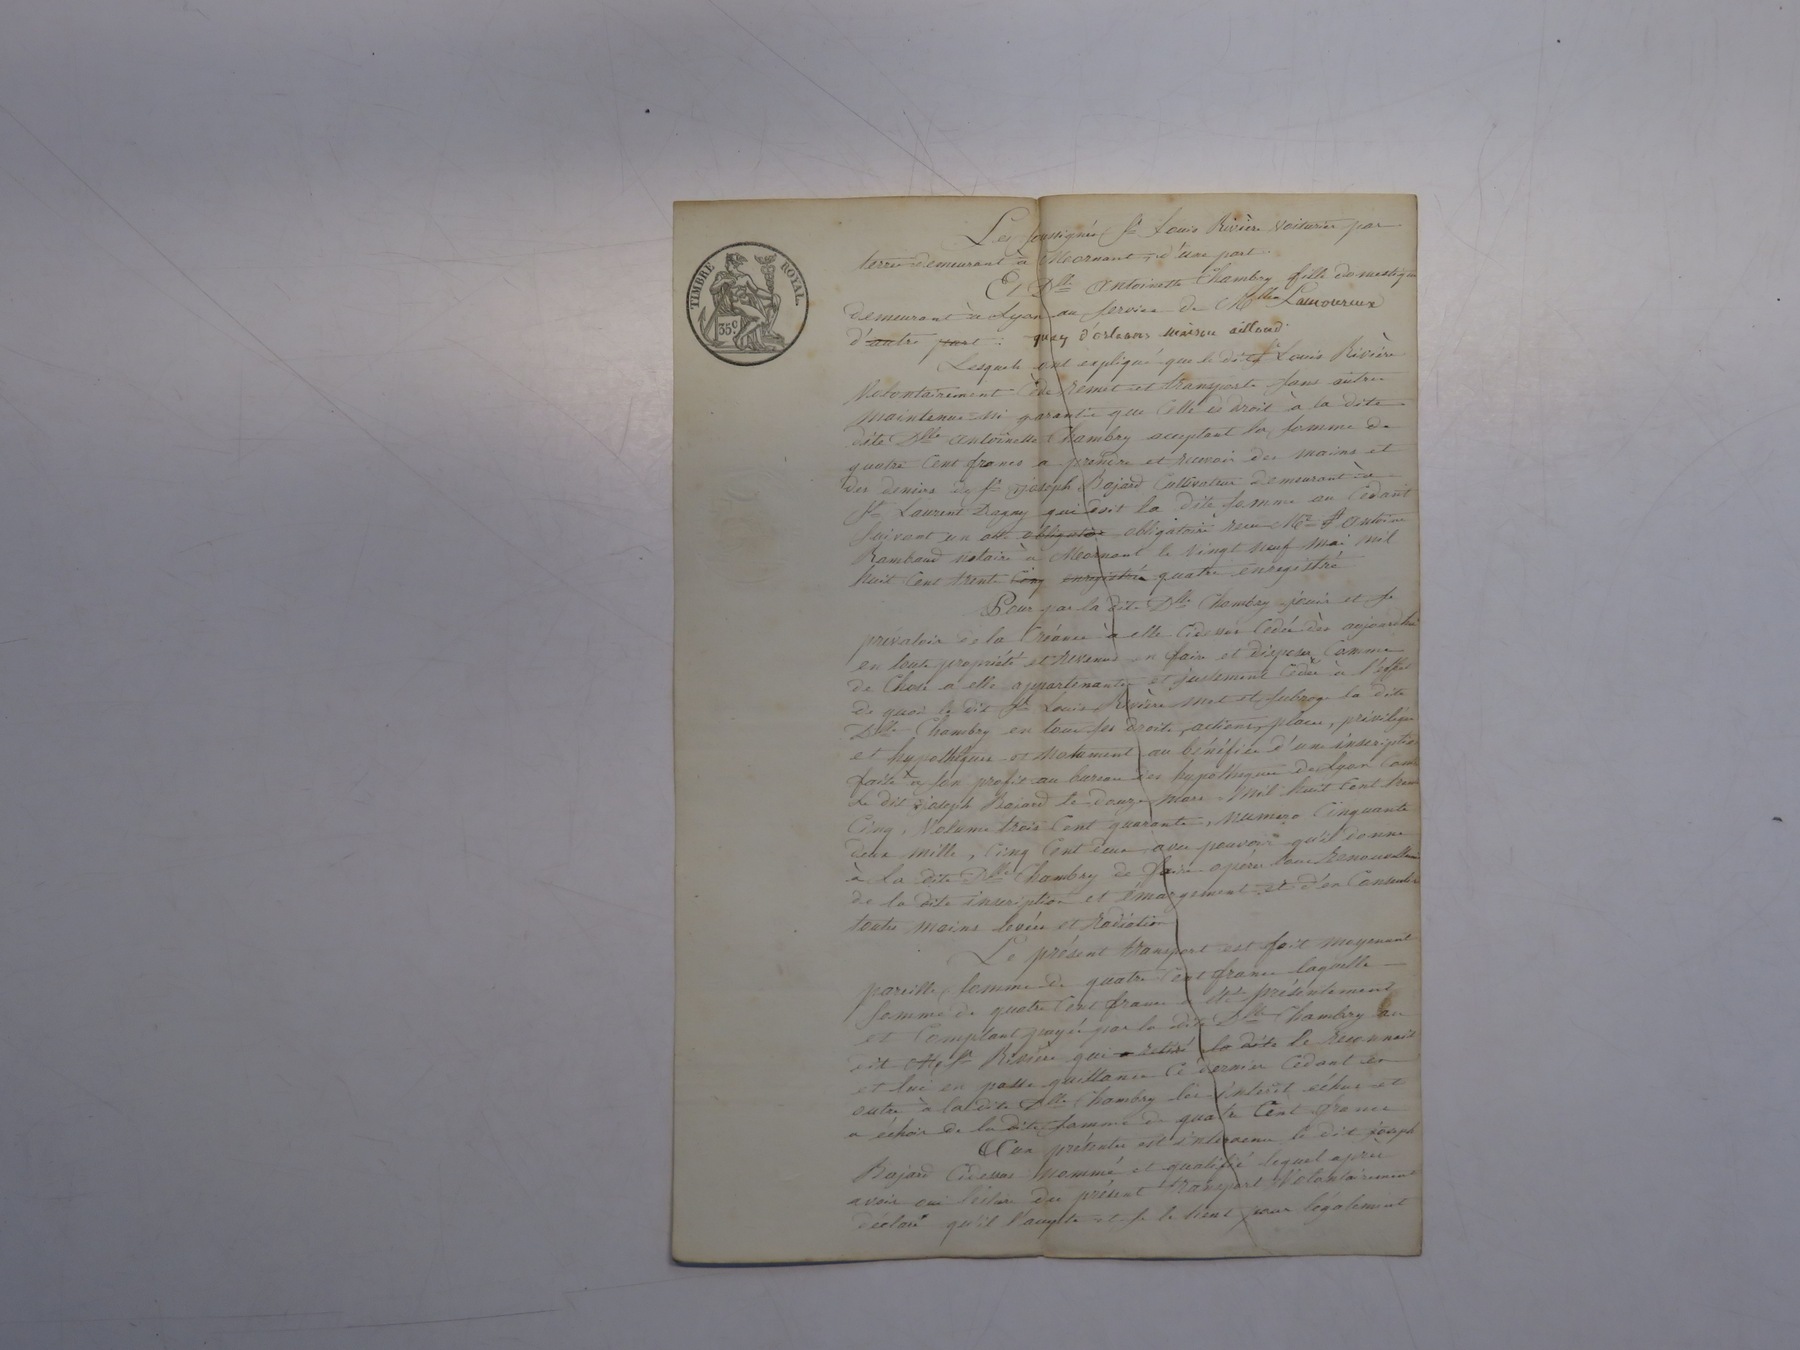 TIMBRE ROYAL.
35.c
Les soussignés Sr Louis Rivière voiturier par
terre demeurant à Mornant, d'une part.
Et Dlle Antoinette Chambry fille domestique
demeurant à Lyon au service de Mlles Lamoureux
d'autre part : quay d'orleans maison aillaud.
Lesquels ont expliqué que le dit Sr Louis Rivière
Volontairement Cède remet et transporte sans autre
maintenue ni garantie que Celle de droit à la dite
dite Dlle Antoinette Chambry acceptant la somme de
quatre Cent francs a prendre et recevoir des mains et
des deniers de Sr joseph Bajard Cultivateur demeurant à
St Laurent Dagny qui doit la dite somme au Cédant
suivant un acte obligatoire obligatoire recu Me Antoine
Rambaud notaire à Mornant le vingt neuf mai mil
huit Cent trente Cinq enregistré quatre enregistré
Pour par la dite Dlle Chambry jouir et se
prévaloir de la Créance à elle Cidessus Cédée dès aujourdhui
en toute propriété et revenus en faire et disposer Comme
de Chose a elle appartenante et justement Cédée à l'effet
de quoi le dit Sr Louis Rivière met et subroge la dite
Dlle Chambry en tous ses droits, actions, places, priviléges
et hypothèques et notament au bénéfice d'une inscription
faite à son profit au bureau des hypothèques de Lyon Contre
Le dit joseph Bajard le douze mars mil huit Cent trente
Cinq, Volume trois Cent quarante, numero Cinquante
deux mille, Cinq Cent deux avec pouvoir qu'il donne
à La dite Dlle Chambry de faire opérer tous renouvellements
de la dite inscription et émargement et d'en Consentir
toutes mains levées et radiation
Le présent transport est fait moyenant
pareille somme de quatre Cent francs laquelle
somme de quatre Cent francs a été présentement
et Comptant payée par la dite Dlle Chambry au
dit Sr Rivière qui a retiré la dite le reconnait
et lui en passe quittance Ce dernier Cédant en
outre à la dite Dlle Chambry les intérêt échus et
a échoir de la dite somme de quatre Cent francs
Aux présentes est intervenu le dit joseph
Bajard Cidessus nommé et qualifié lequel après
avoir oui lecture du présent transport Volontairement
déclare qu'il l'accepte et se le tient pour légalement